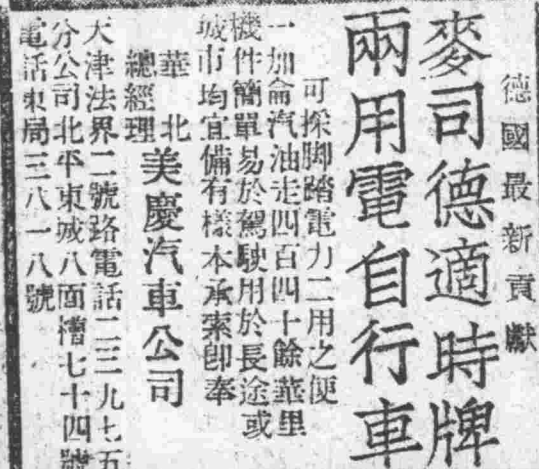 德國最新貢獻
麥司德適時牌
兩用電自行車
可採脚踏電力二用之便
一加侖汽油走四百四十餘華里
機件簡單易於駕駛用於長途或
城市均宜備有樣本承索卽奉
華北
總經理
美慶汽車公司
天津法界二號路電話三二九七五
分公司北平東城八面槽七十四號
電話東局三八一八號